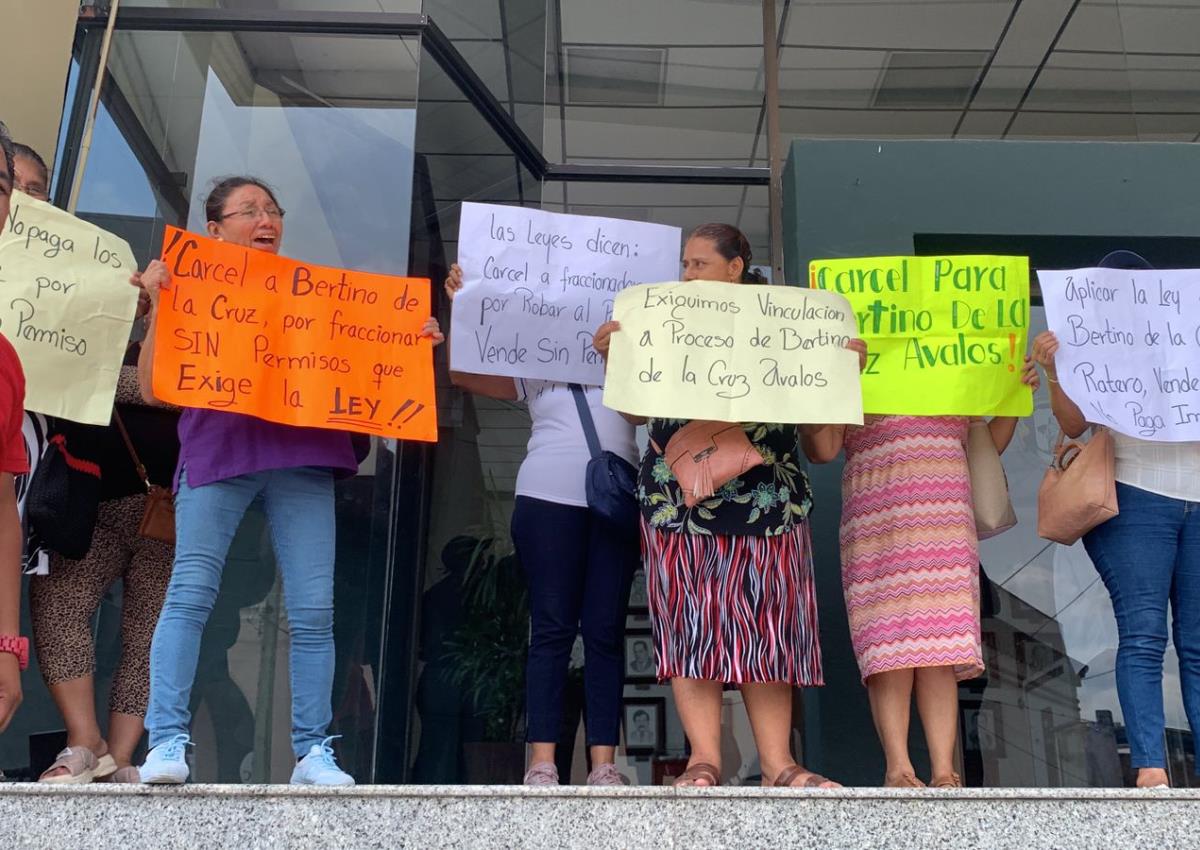 No paga los
por
Permiso
¡Carcel a Bertino de
la Cruz, por fraccionar
SIN Permisos que
Exige la LEY!!
las Leyes dicen:
Carcel a fraccionador
por Robar al
Vende Sin
Exiguimos Vinculacion
a Proceso de Bertino
de la Cruz Avalos
¡Carcel Para
De La
Avalos!
Aplicar la Ley
Bertino de la
Ratero, Vende
No Paga